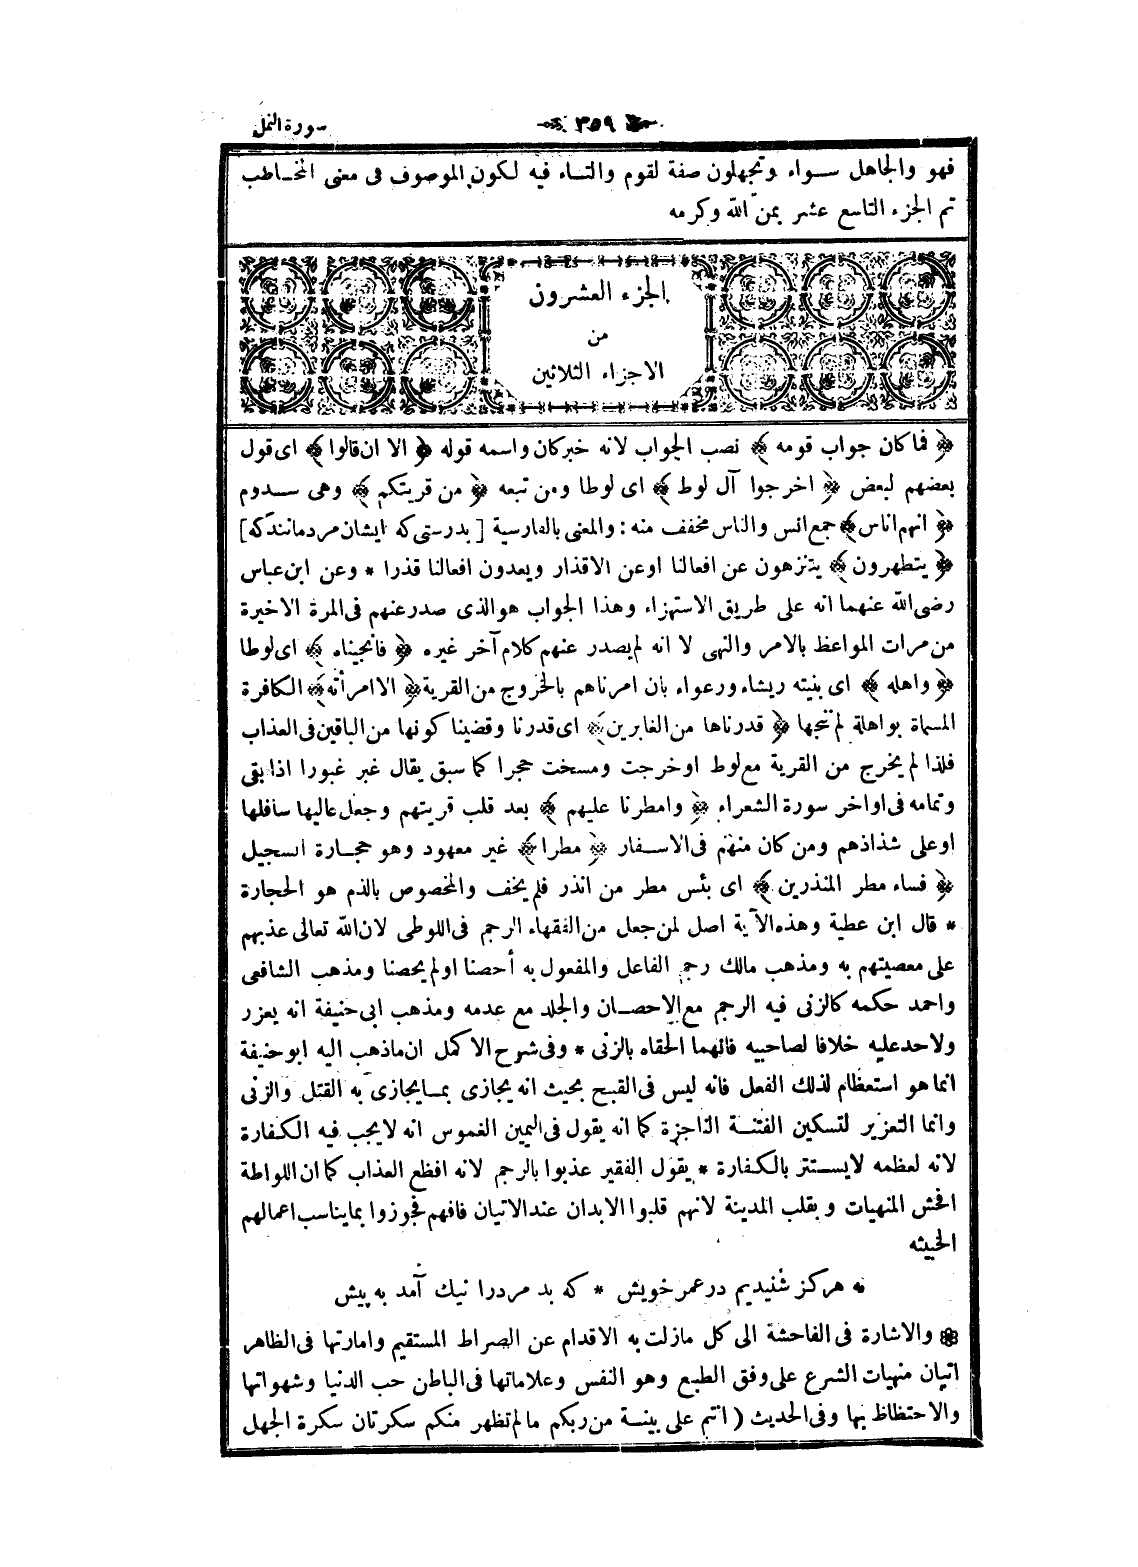 سورة النمل
٣٥٩
فهو والجاهل سواء وتجهلون صفة لقوم والتاء فيه لكون الموصوف فى معنى المخاطب
تم الجزء التاسع عشر بمن الله وكرمه
الجزء العشرون
من
الاجزاء الثلاثين
﴿ فماكان جواب قومه ﴾ نصب الجواب لانه خبركان واسمه قوله ﴿ الا ان قالوا ﴾ اى قول
بعضهم لبعض ﴿ اخرجوا آل لوط ﴾ اى لوطا ومن تبعه ﴿ من قريتكم ﴾ وهى سدوم
﴿ انهم اناس ﴾ جمع انس والناس مخفف منه : والمعنى بالفارسية [ بدرستى كه ايشان مردمانندكه]
﴿ يتطهرون ﴾ يتنزهون عن افعالنا اوعن الاقذار ويعدون افعالنا قذرا * وعن ابن عباس
رضى الله عنهما انه على طريق الاستهزاء وهذا الجواب هوالذى صدرعنهم فى المرة الاخيرة
من مرات المواعظ بالامر والنهى لا انه لم يصدر عنهم كلام آخر غيره ﴿ فانجيناه ﴾ اى لوطا
﴿ واهله ﴾ اى بنيته ريشاء ورعواء بان امرناهم بالخروج من القرية ﴿ الاامرأته ﴾ الكافرة
المسماة بواهلة لم ننجها ﴿ قدرناها من الغابرين ﴾ اى قدرنا وقضينا كونها من الباقين فى العذاب
فلذا لم يخرج من القرية مع لوط اوخرجت ومسخت حجرا كما سبق يقال غبر غبورا اذا بقى
وتمامه فى اواخر سورة الشعراء ﴿ وامطرنا عليهم ﴾ بعد قلب قريتهم وجعل عاليها سافلها
اوعلى شذاذهم ومن كان منهم فى الاسفار ﴿ مطرا ﴾ غير معهود وهو حجارة السجيل
﴿ فساء مطر المنذرين ﴾ اى بئس مطر من انذر فلم يخف والمخصوص بالذم هو الحجارة
* قال ابن عطية وهذه الآية اصل لمن جعل من الفقهاء الرجم فى اللوطى لان الله تعالى عذبهم
على معصيتهم به ومذهب مالك رجم الفاعل والمفعول به أحصنا اولم يحصنا ومذهب الشافعى
واحمد حكمه كالزنى فيه الرجم مع الاحصان والجلد مع عدمه ومذهب ابى حنيفة انه يعزر
ولاحدعليه خلافا لصاحبيه فانهما الحقاه بالزنى * وفى شرح الاكمل ان ماذهب اليه ابوحنيفة
انما هو استعظام لذلك الفعل فانه ليس فى القبح بحيث انه يجازى بمايجازى به القتل والزنى
وانما التعزير لتسكين الفتنة الناجزة كما انه يقول فى اليمين الغموس انه لايجب فيه الكفارة
لانه لعظمه لايستتر بالكفارة * يقول الفقير عذبوا بالرجم لانه افظع العذاب كما ان اللواطة
افحش المنهيات وبقلب المدينة لانهم قلبوا الابدان عندالاتيان فافهم فجوزوا بمايناسب اعمالهم
الخبيثه
نه هركز شنيديم درعمر خويش * كه بد مردرا نيك آمد به پيش
والاشارة فى الفاحشة الى كل مازلت به الاقدام عن الصراط المستقيم وامارتها فى الظاهر
اتيان منهيات الشرع على وفق الطبع وهو النفس وعلاماتها فى الباطن حب الدنيا وشهواتها
والاحتظاظ بها وفى الحديث ( اتم على بينة من ربكم مالم تظهر منكم سكرتان سكرة الجهل